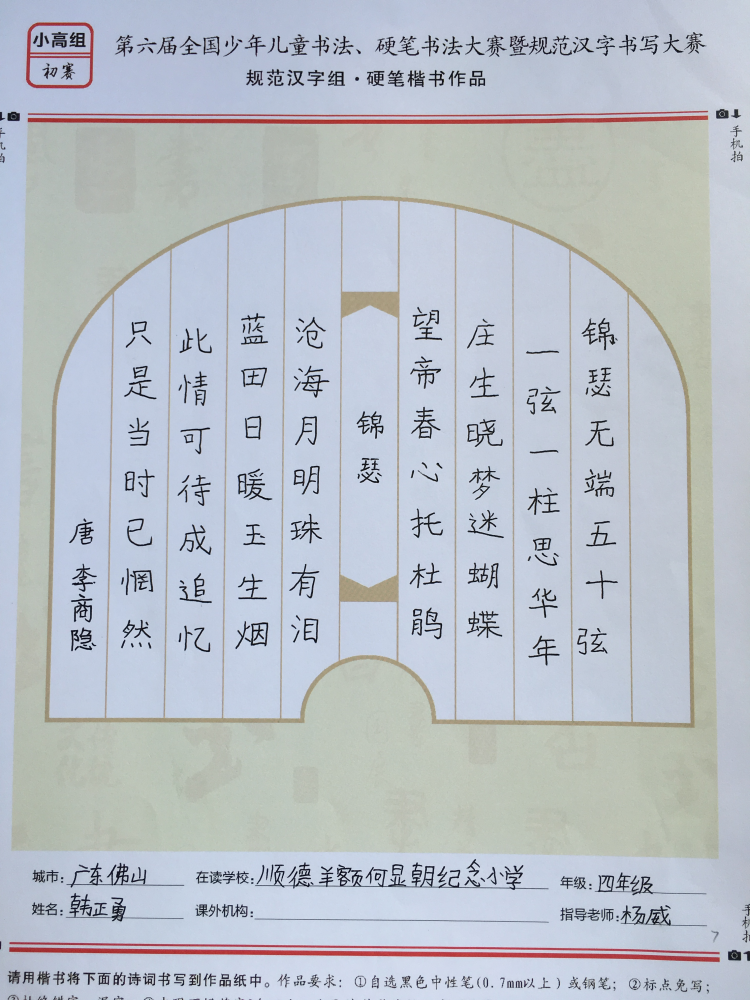 小高组
初赛
第六届全国少年儿童书法、硬笔书法大赛暨规范汉字书写大赛
规范汉字组·硬笔楷书作品
手机拍
手机拍
锦瑟无端五十弦
一弦一柱思华年
庄生晓梦迷蝴蝶
望帝春心托杜鹃
锦瑟
沧海月明珠有泪
蓝田日暖玉生烟
此情可待成追忆
只是当时已惘然
唐 李商隐
城市：广东佛山 在读学校：顺德羊额何显朝纪念小学 年级：四年级
姓名：韩正勇 课外机构： 指导老师：杨威
7
手机拍
请用楷书将下面的诗词书写到作品纸中。作品要求：①自选黑色中性笔(0.7mm以上)或钢笔；②标点免写；